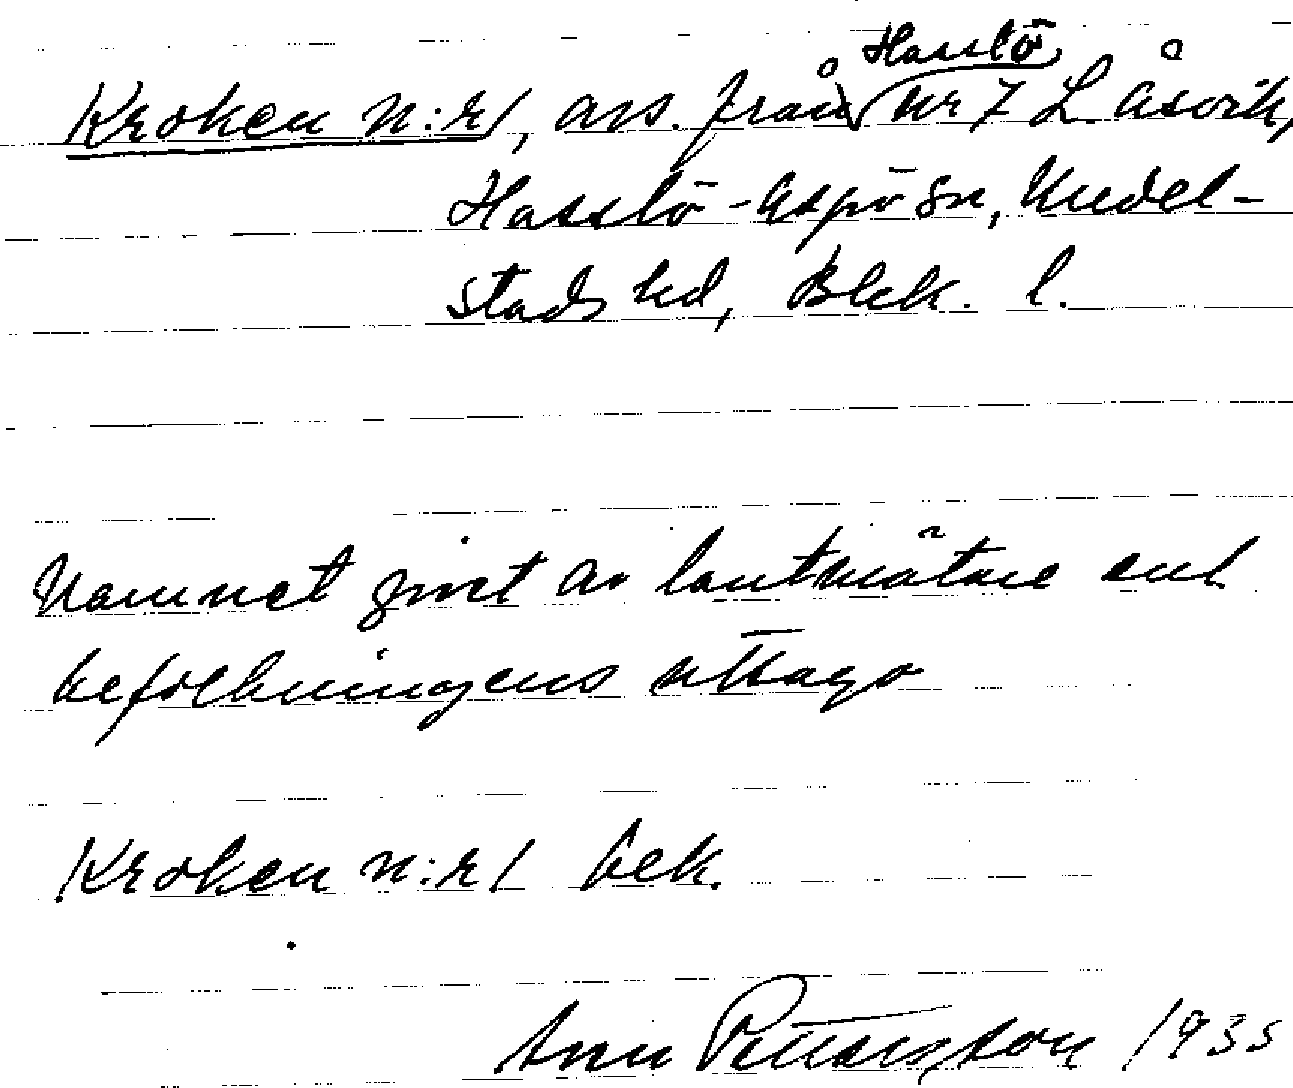 Hasslö
Kroken n:r 1, avs. från Nr 7 L. Åsvik,
Hasslö-Aspö sn, Medel-
stads hd, Blek. l.
Namnet givet av lantmätare enl
befolkningens utsago
Kroken n:r 1 bek.
Pettersson 1935